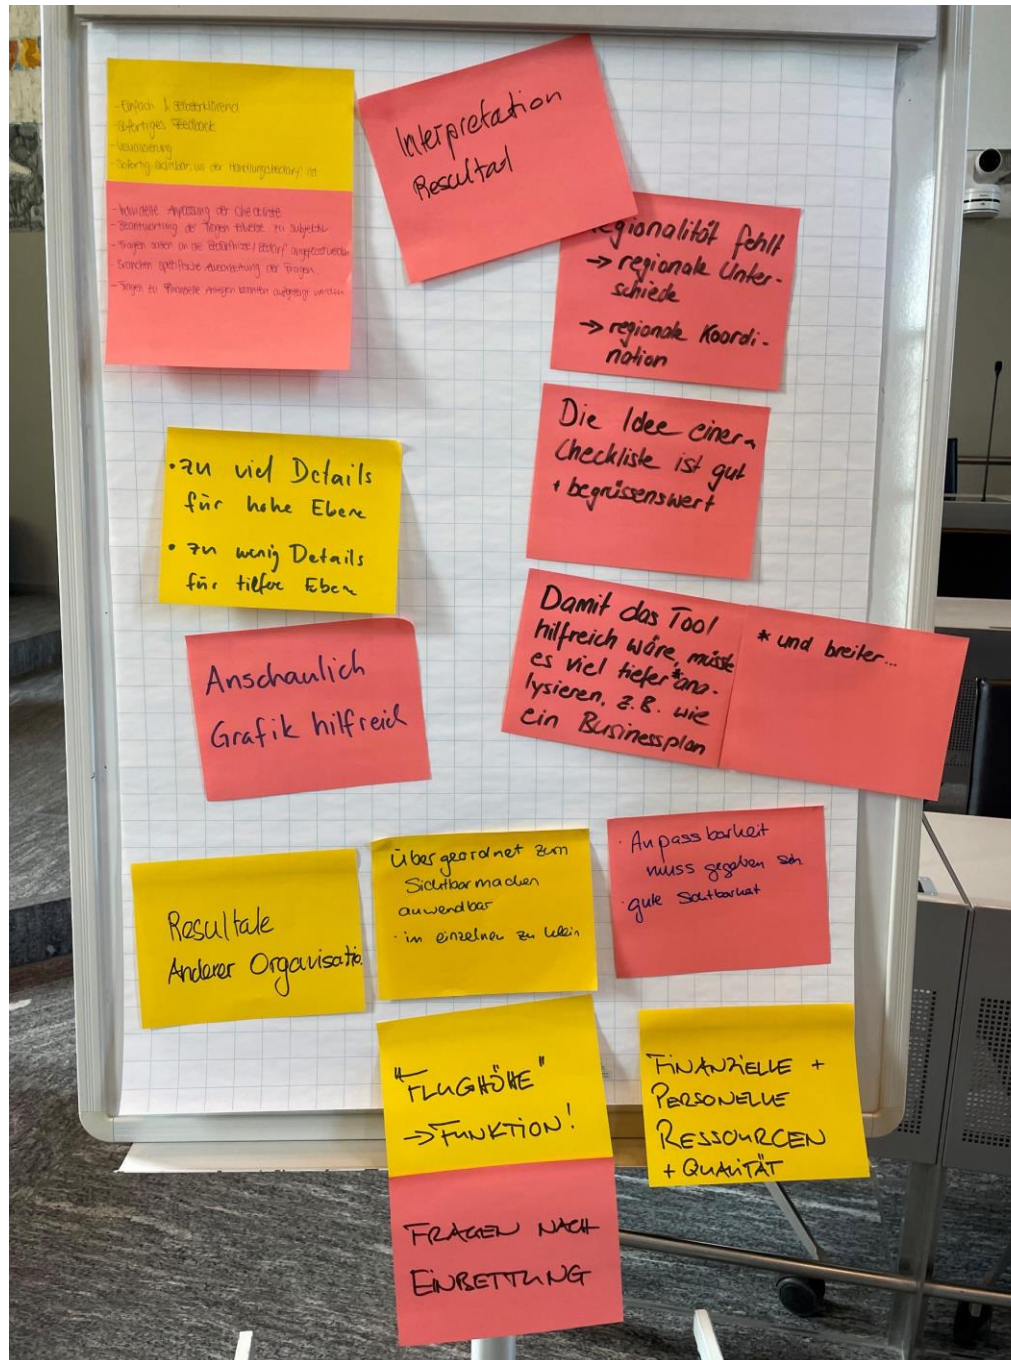 - Einfach & selbsterklärend
- Sofortiges Feedback
- Visualisierung
- Sofortig sichtbar, wo der Handlungsbedarf ist
- Individuelle Anpassung der Checkliste
- Beantwortung der Fragen teilweise zu subjektiv
- Fragen sollten an die Bedürfnisse / Bedarf angepasst werden
- Branchen spezifische Ausarbeitung der Fragen
- Fragen zu finanzielle Anliegen könnten aufgezeigt werden
Interpretation
Resultat
Regionalität fehlt
→ regionale Unter-
schiede
→ regionale Koordi-
nation
Die Idee einer
Checkliste ist gut
+ begrüssenswert
• zu viel Details
für hohe Ebene
• zu wenig Details
für tiefere Ebene
Damit das Tool
hilfreich wäre, müsste
es viel tiefer* ana-
lysieren, z.B. wie
ein Businessplan
* und breiter...
Anschaulich
Grafik hilfreich
Resultate
Anderer Organisatio.
Übergeordnet zum
Sichtbarmachen
anwendbar
· im einzelnen zu klein
· Anpassbarkeit
muss gegeben sein
· gute Sichtbarkeit
"FLUGHÖHE"
→ FUNKTION!
FRAGEN NACH
EINBETTUNG
FINANZIELLE +
PERSONELLE
RESSOURCEN
+ QUALITÄT